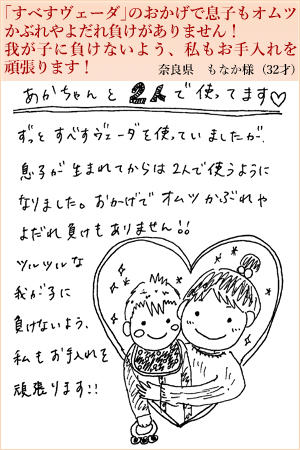 「すべすヴェーダ」のおかげで息子もオムツ
かぶれやよだれ負けがありません！
我が子に負けないよう、私もお手入れを
頑張ります！
奈良県　もなか様（32才）
あかちゃんと2人で使ってます♡
ずっと すべすヴェーダを使っていましたが、
息子が生まれてからは2人で使うように
なりました。おかげで オムツ かぶれや
よだれ負けもありません!!
ツルツルな
我が子に
負けないよう、
私もお手入れを
頑張ります!!